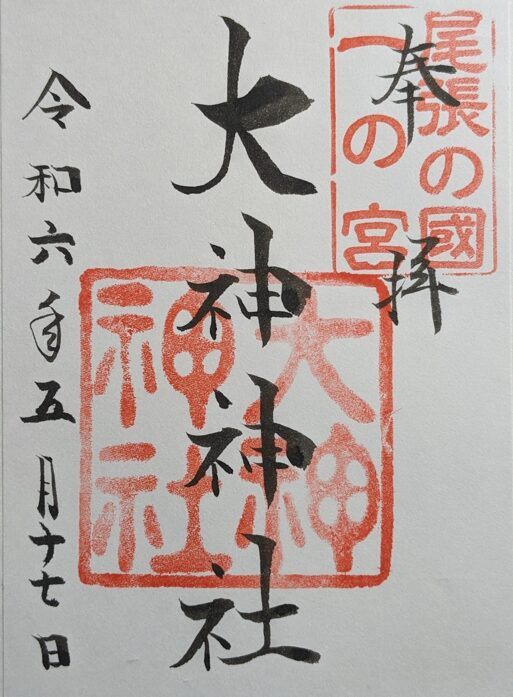 尾張の國
一の宮
奉拝
大神神社
大神
神社
令和六年五月十七日